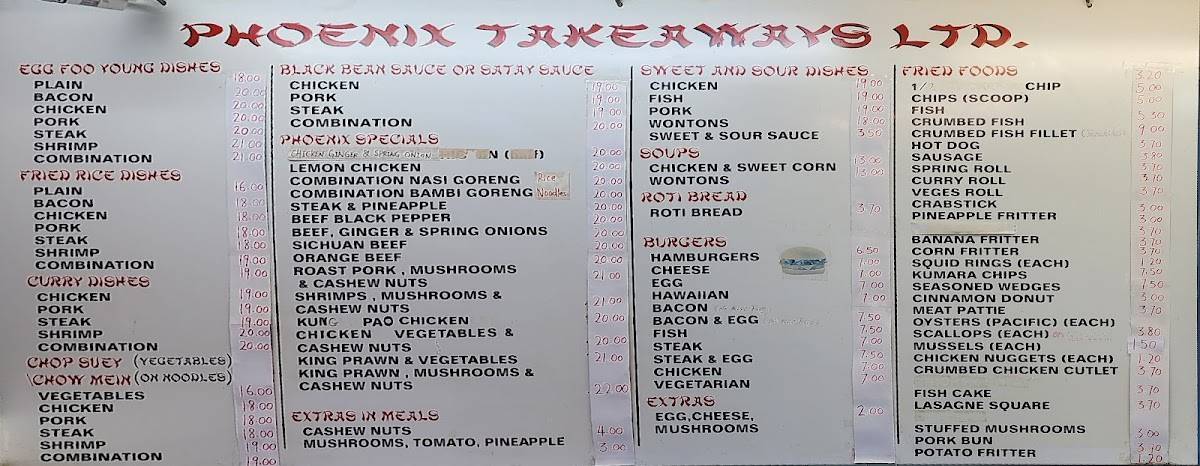 PHOENIX TAKEAWAYS LTD.
EGG FOO YOUNG DISHES
PLAIN 18.00
BACON 20.00
CHICKEN 20.00
PORK 20.00
STEAK 20.00
SHRIMP 21.00
COMBINATION 21.00
FRIED RICE DISHES
PLAIN 16.00
BACON 18.00
CHICKEN 18.00
PORK 18.00
STEAK 18.00
SHRIMP 19.00
COMBINATION 19.00
CURRY DISHES
CHICKEN 19.00
PORK 19.00
STEAK 19.00
SHRIMP 20.00
COMBINATION 20.00
CHOP SUEY (VEGETABLES)
CHOW MEIN (ON NOODLES)
VEGETABLES 16.00
CHICKEN 18.00
PORK 18.00
STEAK 18.00
SHRIMP 19.00
COMBINATION 19.00
BLACK BEAN SAUCE OR SATAY SAUCE
CHICKEN 19.00
PORK 19.00
STEAK 19.00
COMBINATION 20.00
PHOENIX SPECIALS
CHICKEN GINGER & SPRING ONION 20.00
LEMON CHICKEN 20.00
COMBINATION NASI GORENG Rice 20.00
COMBINATION BAMBI GORENG Noodles 20.00
STEAK & PINEAPPLE 20.00
BEEF BLACK PEPPER 20.00
BEEF, GINGER & SPRING ONIONS 20.00
SICHUAN BEEF 20.00
ORANGE BEEF 20.00
ROAST PORK, MUSHROOMS
& CASHEW NUTS 21.00
SHRIMPS, MUSHROOMS &
CASHEW NUTS 21.00
KUNG PAO CHICKEN 20.00
CHICKEN VEGETABLES &
CASHEW NUTS 20.00
KING PRAWN & VEGETABLES 21.00
KING PRAWN, MUSHROOMS &
CASHEW NUTS 22.00
EXTRAS IN MEALS
CASHEW NUTS 4.00
MUSHROOMS, TOMATO, PINEAPPLE 3.00
SWEET AND SOUR DISHES
CHICKEN 19.00
FISH 19.00
PORK 19.00
WONTONS 18.00
SWEET & SOUR SAUCE 3.50
SOUPS
CHICKEN & SWEET CORN 13.00
WONTONS 13.00
ROTI BREAD
ROTI BREAD 3.70
BURGERS
HAMBURGERS 6.50
CHEESE 7.00
EGG 7.00
HAWAIIAN 7.00
BACON
BACON & EGG 7.50
FISH 7.50
STEAK 7.00
STEAK & EGG 7.50
CHICKEN 7.00
VEGETARIAN 7.00
EXTRAS
EGG, CHEESE, 2.00
MUSHROOMS
FRIED FOODS
1/2 CHIP 3.20
CHIPS (SCOOP) 5.00
FISH 5.00
CRUMBED FISH 5.30
CRUMBED FISH FILLET 9.00
HOT DOG 3.70
SAUSAGE 3.80
SPRING ROLL 3.70
CURRY ROLL 3.70
VEGES ROLL 3.70
CRABSTICK 3.00
PINEAPPLE FRITTER 3.00
BANANA FRITTER 3.70
CORN FRITTER 3.70
SQUID RINGS (EACH) 1.20
KUMARA CHIPS 7.50
SEASONED WEDGES 7.50
CINNAMON DONUT 3.00
MEAT PATTIE 3.70
OYSTERS (PACIFIC) (EACH)
SCALLOPS (EACH) 3.80
MUSSELS (EACH) 1.50
CHICKEN NUGGETS (EACH) 1.20
CRUMBED CHICKEN CUTLET 3.70
FISH CAKE 3.70
LASAGNE SQUARE 3.70
STUFFED MUSHROOMS 3.00
PORK BUN
POTATO FRITTER 1.20